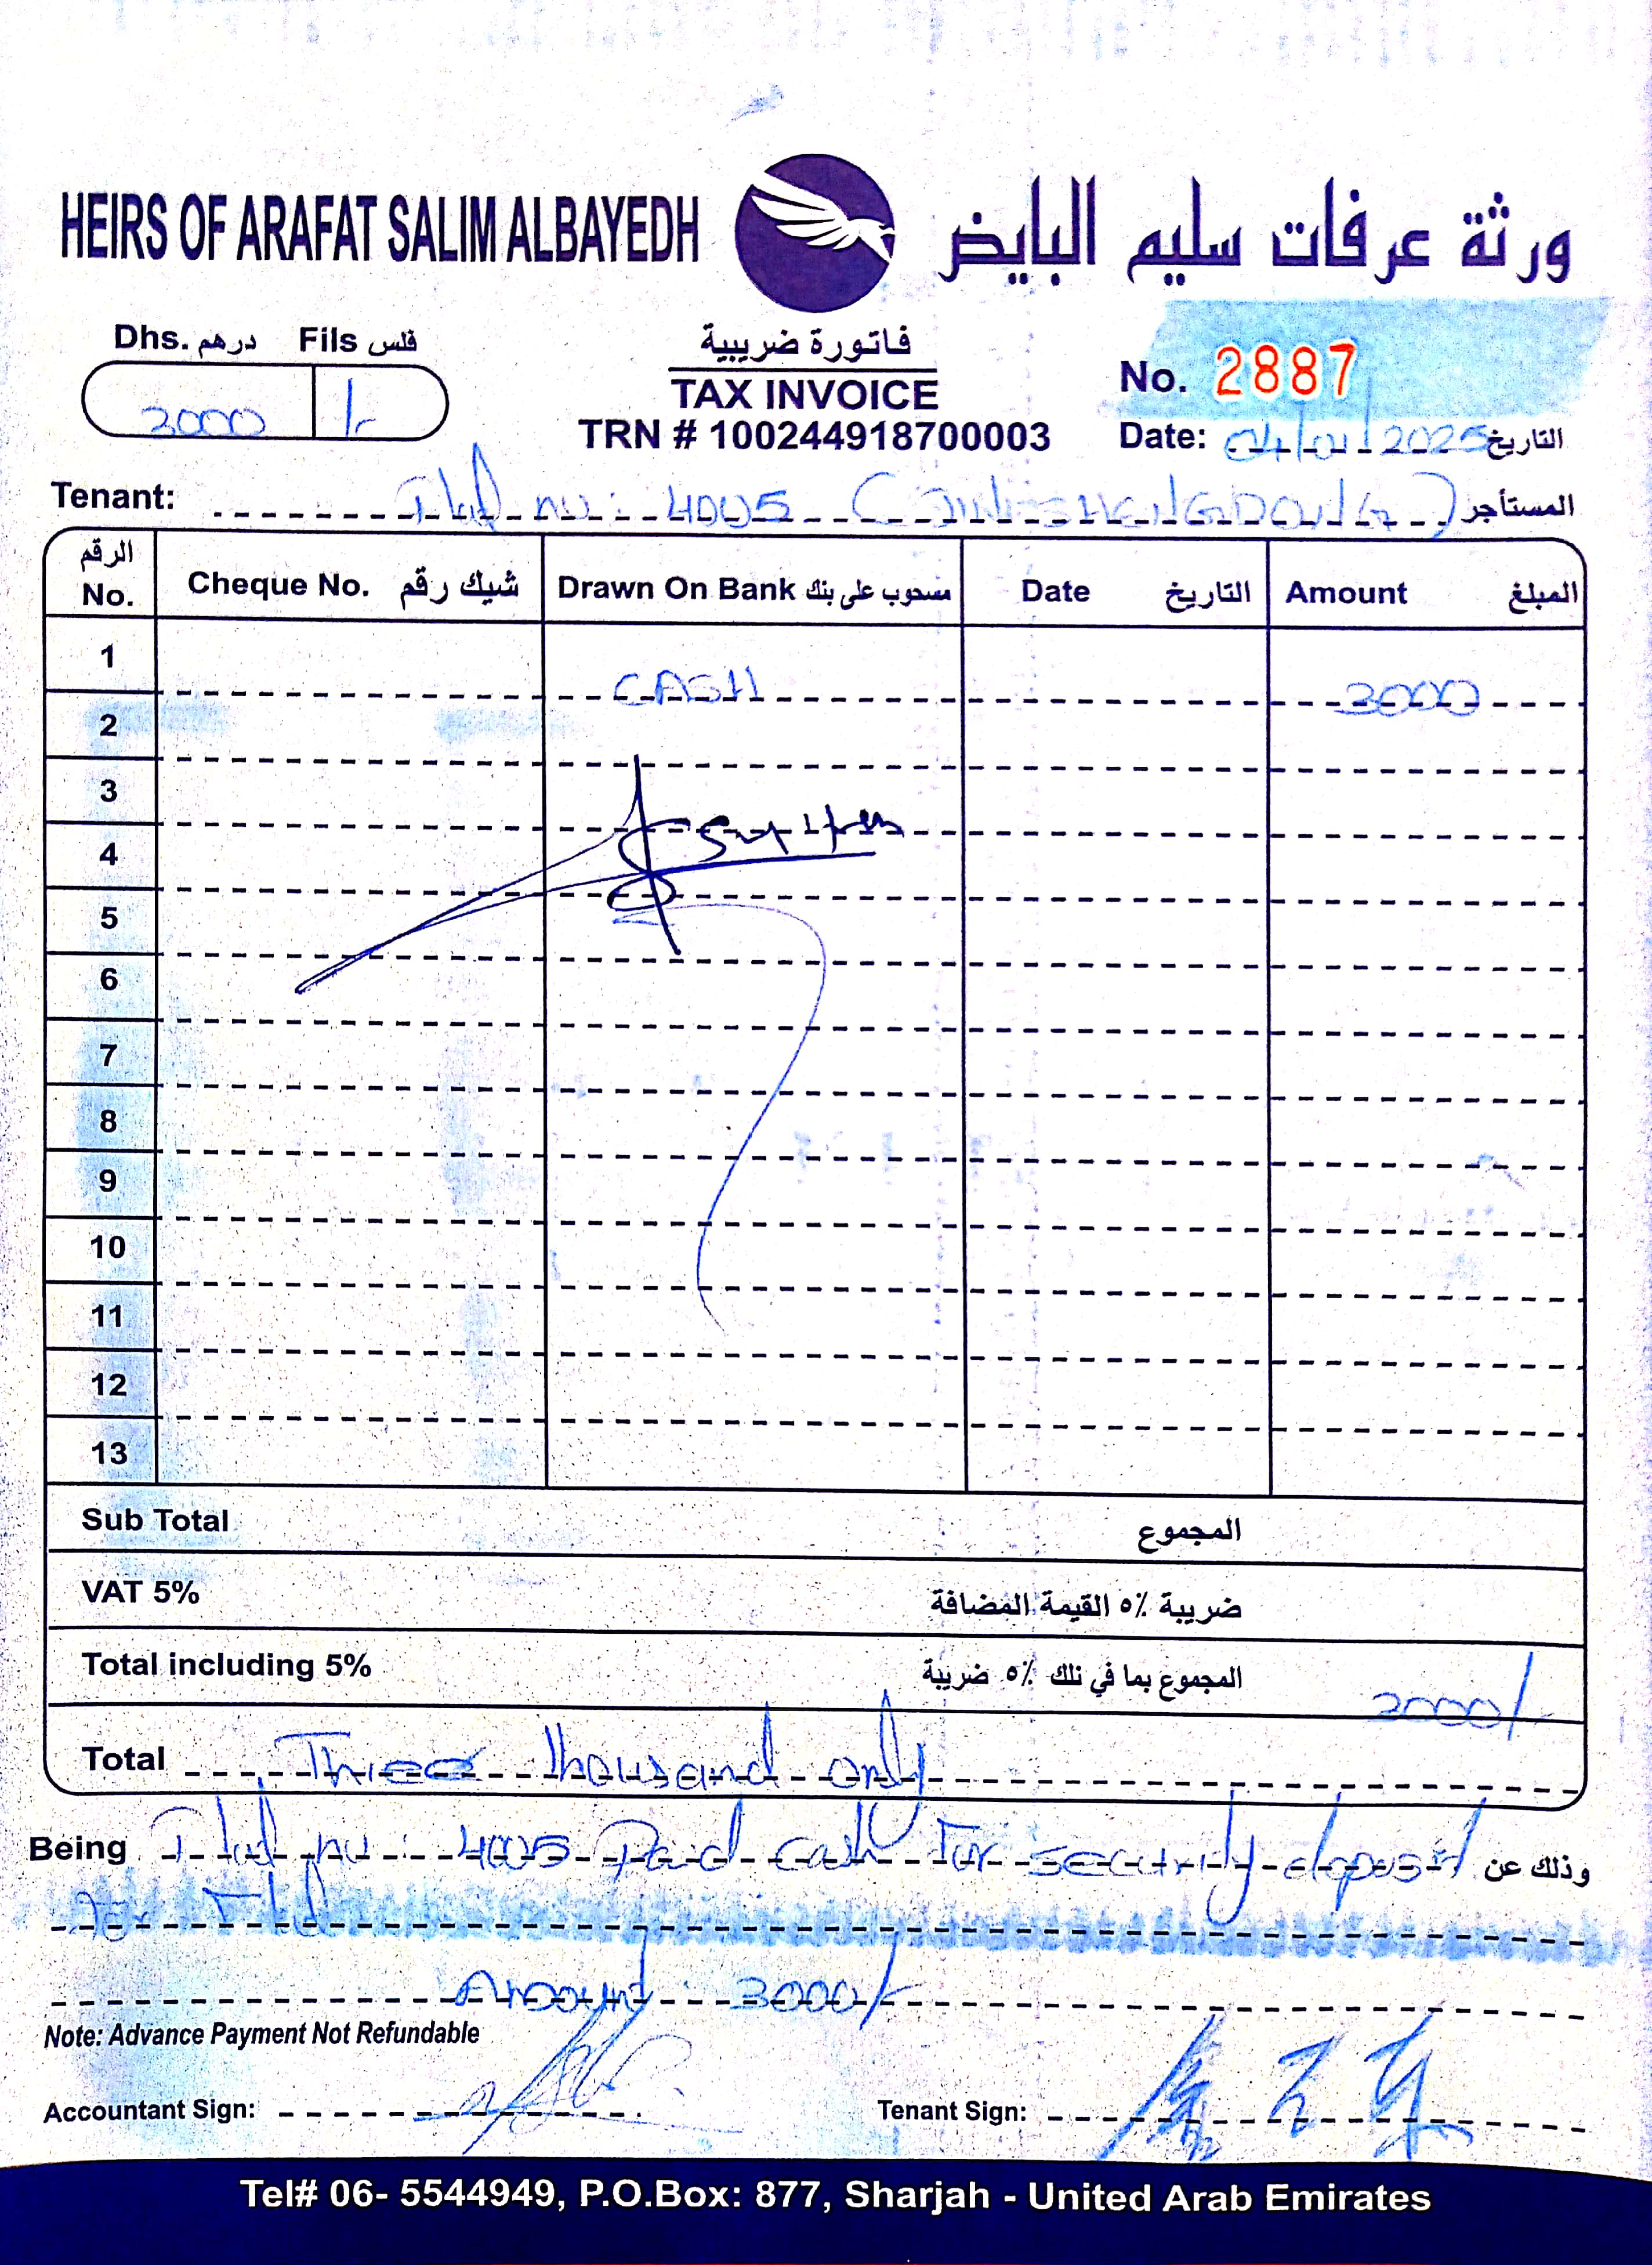 HEIRS OF ARAFAT SALIM ALBAYEDH ورثة عرفات سليم البايض
Dhs. درهم Fils فلس
3000 /-
فاتورة ضريبية
TAX INVOICE
TRN # 100244918700003
No. 2887
Date: 04/01/2025 التاريخ
Tenant: Flat no: 4005 (JIN SHENGDONG) المستأجر
الرقم No. Cheque No. شيك رقم Drawn On Bank مسحوب على بنك Date التاريخ Amount المبلغ
1 CASH 3000
2
3
4
5
6
7
8
9
10
11
12
13
Sub Total المجموع
VAT 5% ضريبة ٥٪ القيمة المضافة
Total including 5% المجموع بما في تلك ٥٪ ضريبة 3000/-
Total Three thousand only
Being Flat no: 4005 Paid cash for security deposit وذلك عن
For Flat
Amount: 3000/-
Note: Advance Payment Not Refundable
Accountant Sign: Tenant Sign:
Tel# 06- 5544949, P.O.Box: 877, Sharjah - United Arab Emirates